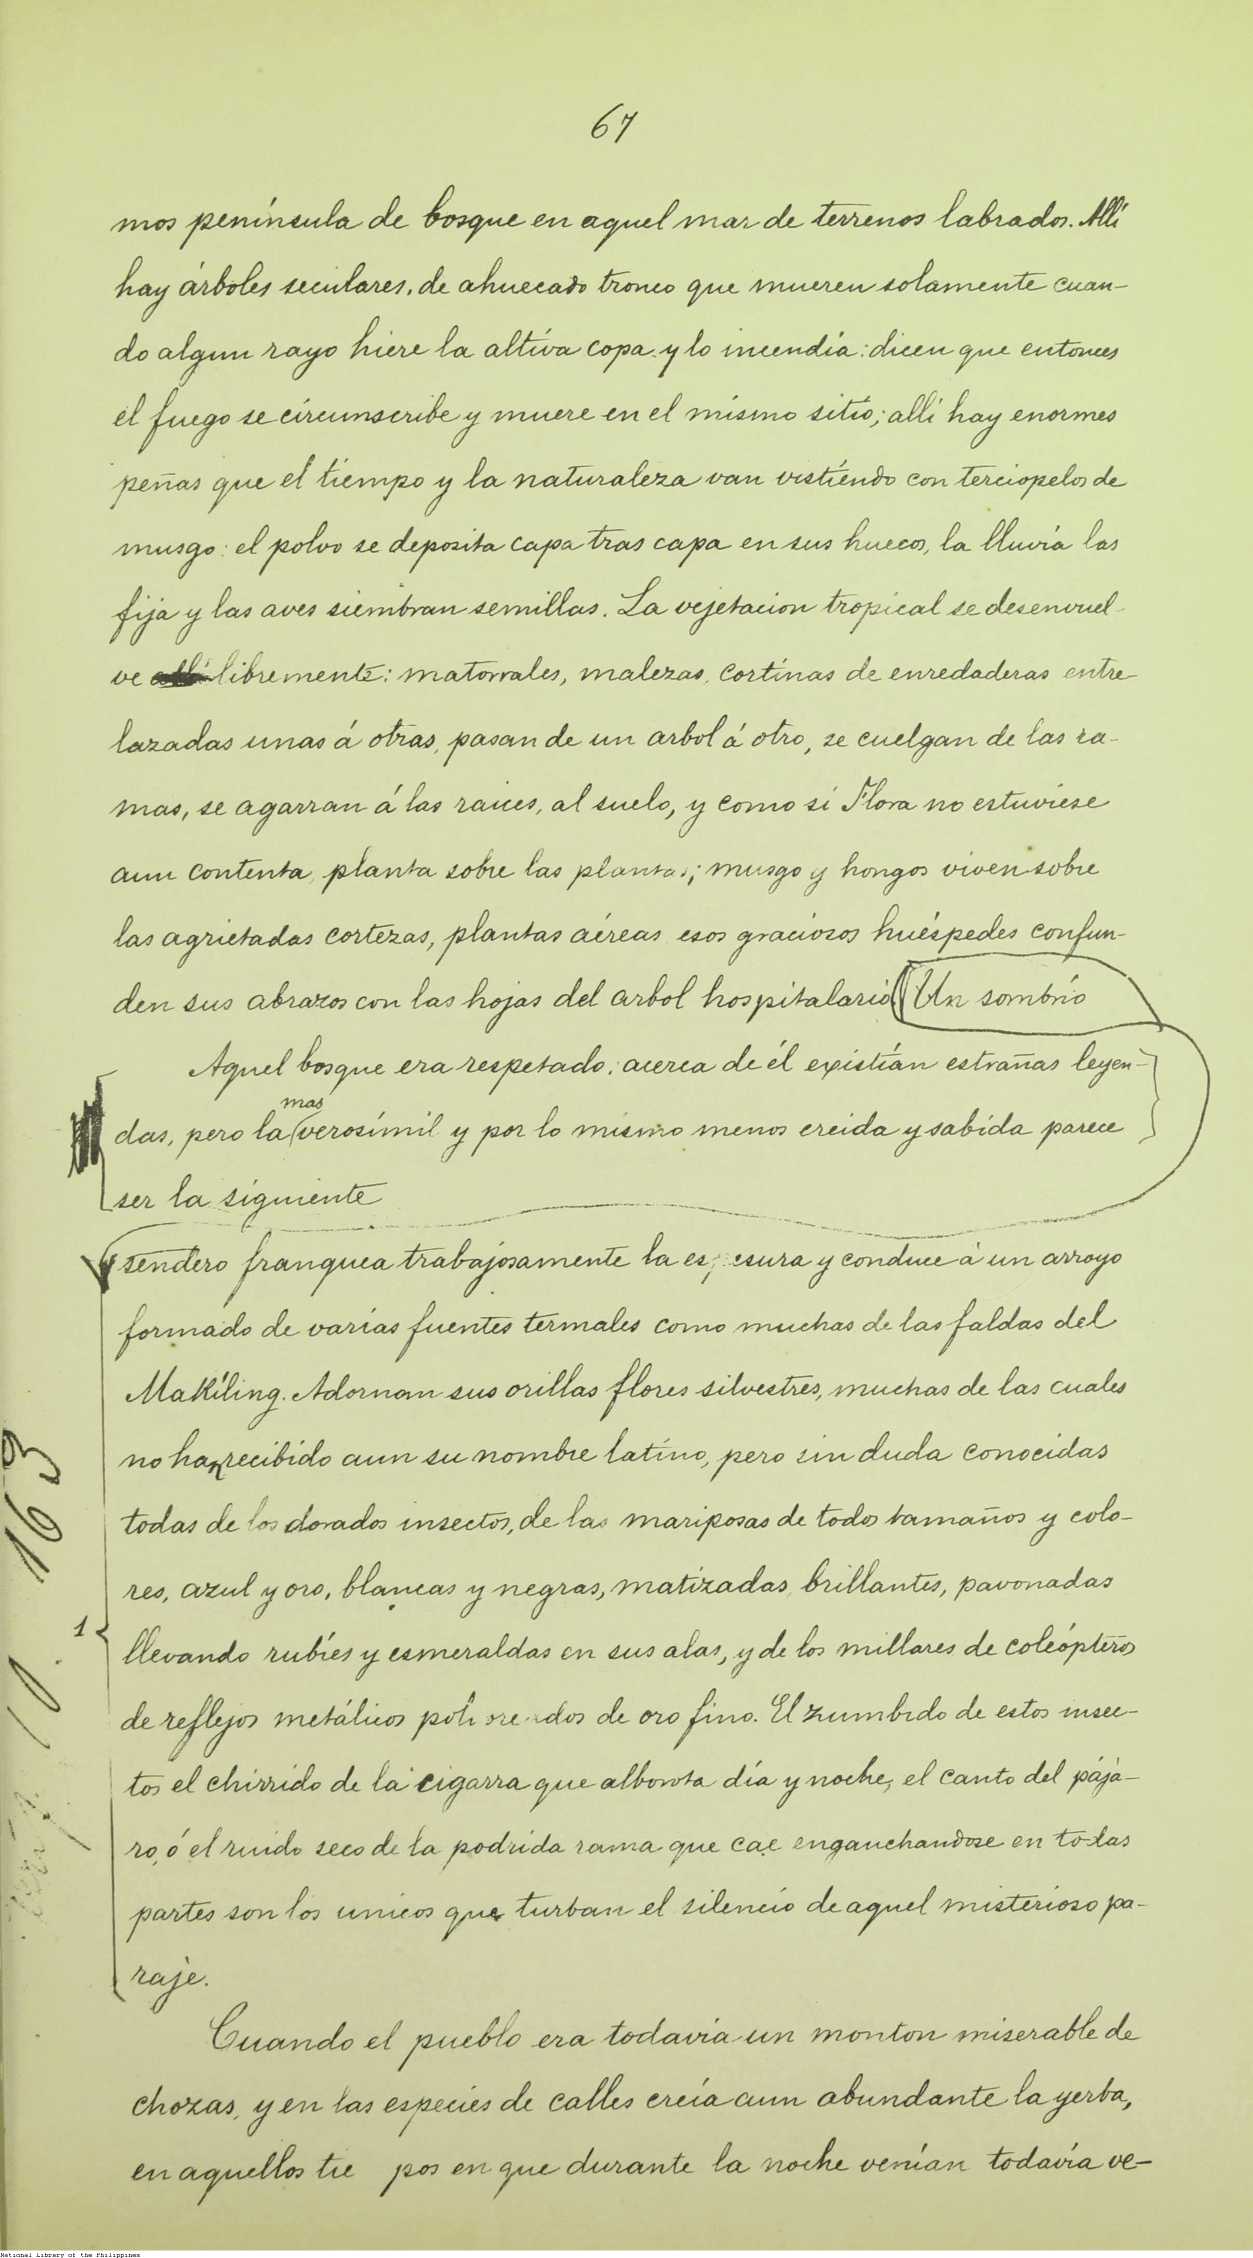 67
mos península de bosque en aquel mar de terrenos labrados. Allí
hay árboles seculares, de ahuecado tronco que mueren solamente cuan-
do algun rayo hiere la altiva copa y lo incendia: dicen que entonces
el fuego se circunscribe y muere en el mismo sitio; alli hay enormes
peñas que el tiempo y la naturaleza van vistiendo con terciopelos de
musgo: el polvo se deposita capa tras capa en sus huecos, la lluvia las
fija y las aves siembran semillas. La vejetacion tropical se desenvuel-
ve libremente: matorrales, malezas, cortinas de enredaderas entre-
lazadas unas á otras, pasan de un arbol á otro, se cuelgan de las ra-
mas, se agarran á las raices, al suelo, y como si Flora no estuviese
aun contenta, planta sobre las plantas; musgo y hongos viven sobre
las agrietadas cortezas, plantas aéreas, esos graciosos huéspedes confun-
den sus abrazos con las hojas del arbol hospitalario. Un sombrío
Aquel bosque era respetado: acerca de él existían estrañas leyen-
mas
das, pero la verosímil y por lo mismo menos creida y sabida parece
ser la siguiente
sendero franquea trabajosamente la espesura y conduce á un arroyo
formado de varias fuentes termales como muchas de las faldas del
Makiling. Adornan sus orillas flores silvestres, muchas de las cuales
no han recibido aun su nombre latino, pero sin duda conocidas
todas de los dorados insectos, de las mariposas de todos tamaños y colo-
res, azul y oro, blancas y negras, matizadas, brillantes, pavonadas
llevando rubíes y esmeraldas en sus alas, y de los millares de coleópteros
1
de reflejos metálicos de oro fino. El zumbido de estos insec-
tos el chirrido de la cigarra que alborota día y noche, el canto del pája-
ro, ó el ruido seco de la podrida rama que cae enganchandose en todas
partes son los unicos que turban el silencio de aquel misterioso pa-
raje.
Cuando el pueblo era todavia un monton miserable de
chozas, y en las especies de calles crecía aun abundante la yerba,
en aquellos tie pos en que durante la noche venían todavía ve-
10. 163
National Library of the Philippines